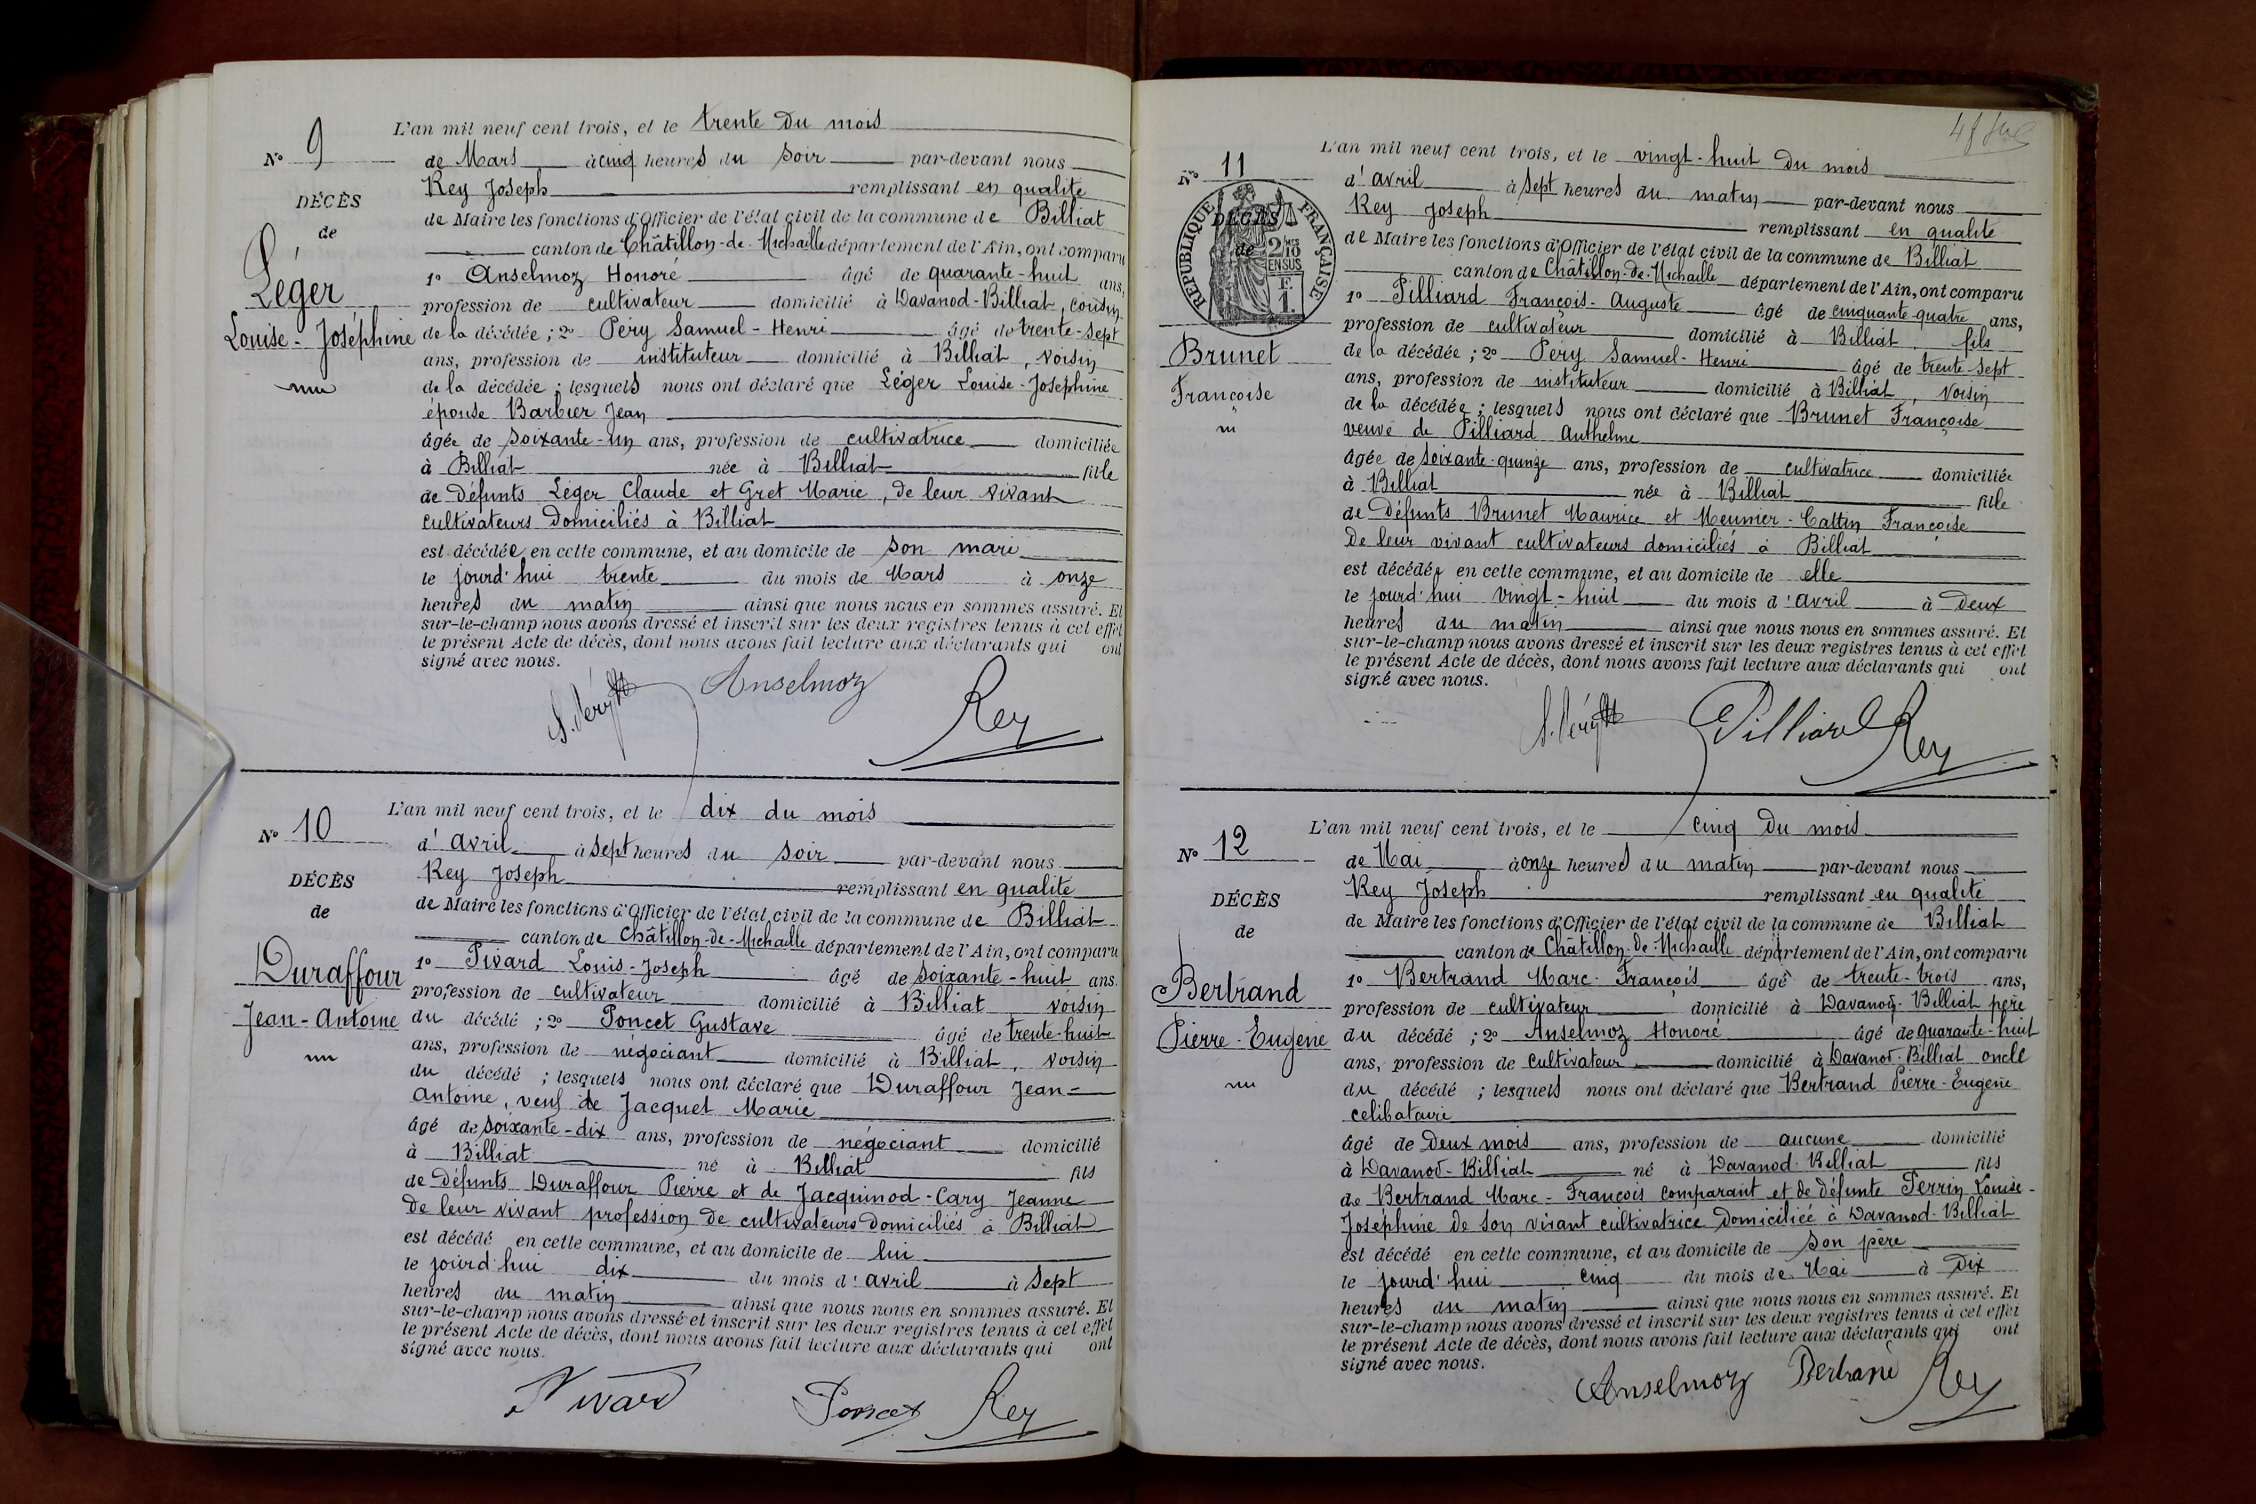 L'an mil neuf cent trois, et le trente du mois
N° 9
de Mars à cinq heures du soir par-devant nous
Rey Joseph remplissant en qualité
DÉCÈS
de Maire les fonctions d'Officier de l'état civil de la commune de Billiat
de
canton de Châtillon-de-Michaille département de l'Ain, ont comparu
1° Anselmoz Honoré âgé de quarante-huit ans,
Léger
profession de cultivateur domicilié à Davanod-Billiat, cousin
Louise-Joséphine
de la décédée ; 2° Péry Samuel-Henri âgé de trente-sept
ans, profession de instituteur domicilié à Billiat, voisin
de la décédée ; lesquels nous ont déclaré que Léger Louise-Josephine
épouse Barbier Jean
âgée de soixante-un ans, profession de cultivatrice domiciliée
à Billiat née à Billiat fille
de défunts Léger Claude et Gret Marie, de leur vivant
cultivateurs domiciliés à Billiat
est décédée en cette commune, et au domicile de son mari
le jourd'hui trente du mois de Mars à onze
heures du matin ainsi que nous nous en sommes assuré. Et
sur-le-champ nous avons dressé et inscrit sur les deux registres tenus à cet effet
le présent Acte de décès, dont nous avons fait lecture aux déclarants qui ont
signé avec nous.
S. Péry Anselmoz
Rey
L'an mil neuf cent trois, et le dix du mois
N° 10
d'avril à sept heures du soir par-devant nous
Rey Joseph remplissant en qualité
DÉCÈS
de Maire les fonctions d'Officier de l'état civil de la commune de Billiat
de
canton de Châtillon-de-Michaille département de l'Ain, ont comparu
1° Pivard Louis-Joseph âgé de soixante-huit ans
Duraffour
profession de cultivateur domicilié à Billiat voisin
Jean-Antoine
du décédé ; 2° Poncet Gustave âgé de trente-huit
ans, profession de négociant domicilié à Billiat, voisin
du décédé ; lesquels nous ont déclaré que Duraffour Jean=
Antoine, veuf de Jacquet Marie
âgé de soixante-dix ans, profession de négociant domicilié
à Billiat né à Billiat fils
de défunts Duraffour Pierre et de Jacquinod-Cary Jeanne
de leur vivant profession de cultivateurs domiciliés à Billiat
est décédé en cette commune, et au domicile de lui
le jourd'hui dix du mois d'avril à sept
heures du matin ainsi que nous nous en sommes assuré. Et
sur-le-champ nous avons dressé et inscrit sur les deux registres tenus à cet effet
le présent Acte de décès, dont nous avons fait lecture aux déclarants qui ont
signé avec nous.
Pivard Poncet Rey
48
L'an mil neuf cent trois, et le vingt-huit du mois
N° 11
d'avril à sept heures du matin par-devant nous
Rey Joseph remplissant en qualité
DÉCÈS
de
RÉPUBLIQUE FRANÇAISE
2/10 MES
EN SUS
F.
1.
de Maire les fonctions d'Officier de l'état civil de la commune de Billiat
canton de Châtillon-de-Michaille département de l'Ain, ont comparu
1° Pilliard François-Auguste âgé de cinquante-quatre ans,
profession de cultivateur domicilié à Billiat, fils
Brunet
de la décédée ; 2° Péry Samuel-Henri âgé de trente-sept
Françoise
ans, profession de instituteur domicilié à Billiat, voisin
de la décédée ; lesquels nous ont déclaré que Brunet Françoise
veuve de Pilliard Anthelme
âgée de soixante-quinze ans, profession de cultivatrice domiciliée
à Billiat née à Billiat fille
de défunts Brunet Maurice et Meunier-Cattin Françoise
de leur vivant cultivateurs domiciliés à Billiat
est décédée en cette commune, et au domicile de elle
le jourd'hui vingt-huit du mois d'avril à deux
heures du matin ainsi que nous nous en sommes assuré. Et
sur-le-champ nous avons dressé et inscrit sur les deux registres tenus à cet effet
le présent Acte de décès, dont nous avons fait lecture aux déclarants qui ont
signé avec nous.
S. Péry Pilliard Rey
L'an mil neuf cent trois, et le cinq du mois
N° 12
de Mai à onze heures du matin par-devant nous
Rey Joseph remplissant en qualité
DÉCÈS
de Maire les fonctions d'Officier de l'état civil de la commune de Billiat
de
canton de Châtillon-de-Michaille département de l'Ain, ont comparu
1° Bertrand Marc-François âgé de trente-trois ans,
Bertrand
profession de cultivateur domicilié à Davanod-Billiat père
Pierre-Eugène
du décédé ; 2° Anselmoz Honoré âgé de quarante-huit
ans, profession de cultivateur domicilié à Davanod-Billiat oncle
du décédé ; lesquels nous ont déclaré que Bertrand Pierre-Eugène
célibataire
âgé de deux mois ans, profession de aucune domicilié
à Davanod-Billiat né à Davanod-Billiat fils
de Bertrand Marc-François comparant et de défunte Perrin Louise-
Joséphine de son vivant cultivatrice domiciliée à Davanod-Billiat
est décédé en cette commune, et au domicile de son père
le jourd'hui cinq du mois de Mai à dix
heures du matin ainsi que nous nous en sommes assuré. Et
sur-le-champ nous avons dressé et inscrit sur les deux registres tenus à cet effet
le présent Acte de décès, dont nous avons fait lecture aux déclarants qui ont
signé avec nous.
Anselmoz Bertrand Rey